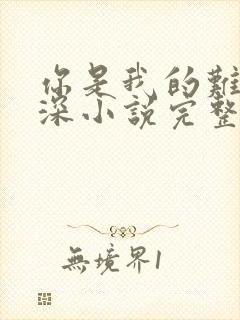 你是我的難
深小說完整
無境界1